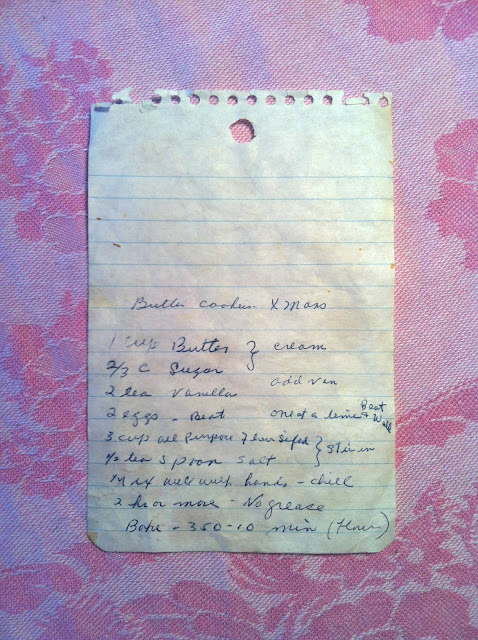 Butter cookies X mas
1 cup Butter } cream
2/3 C Sugar
2 tea Vanilla add van
2 eggs - Beat one at a time & Beat Well
3 cups all Purpose Flour Sifed } Stir in
1/2 tea Spoon Salt
Mix well with hands - chill
2 hr or more - No grease
Bake - 350 - 10 min (Flour)